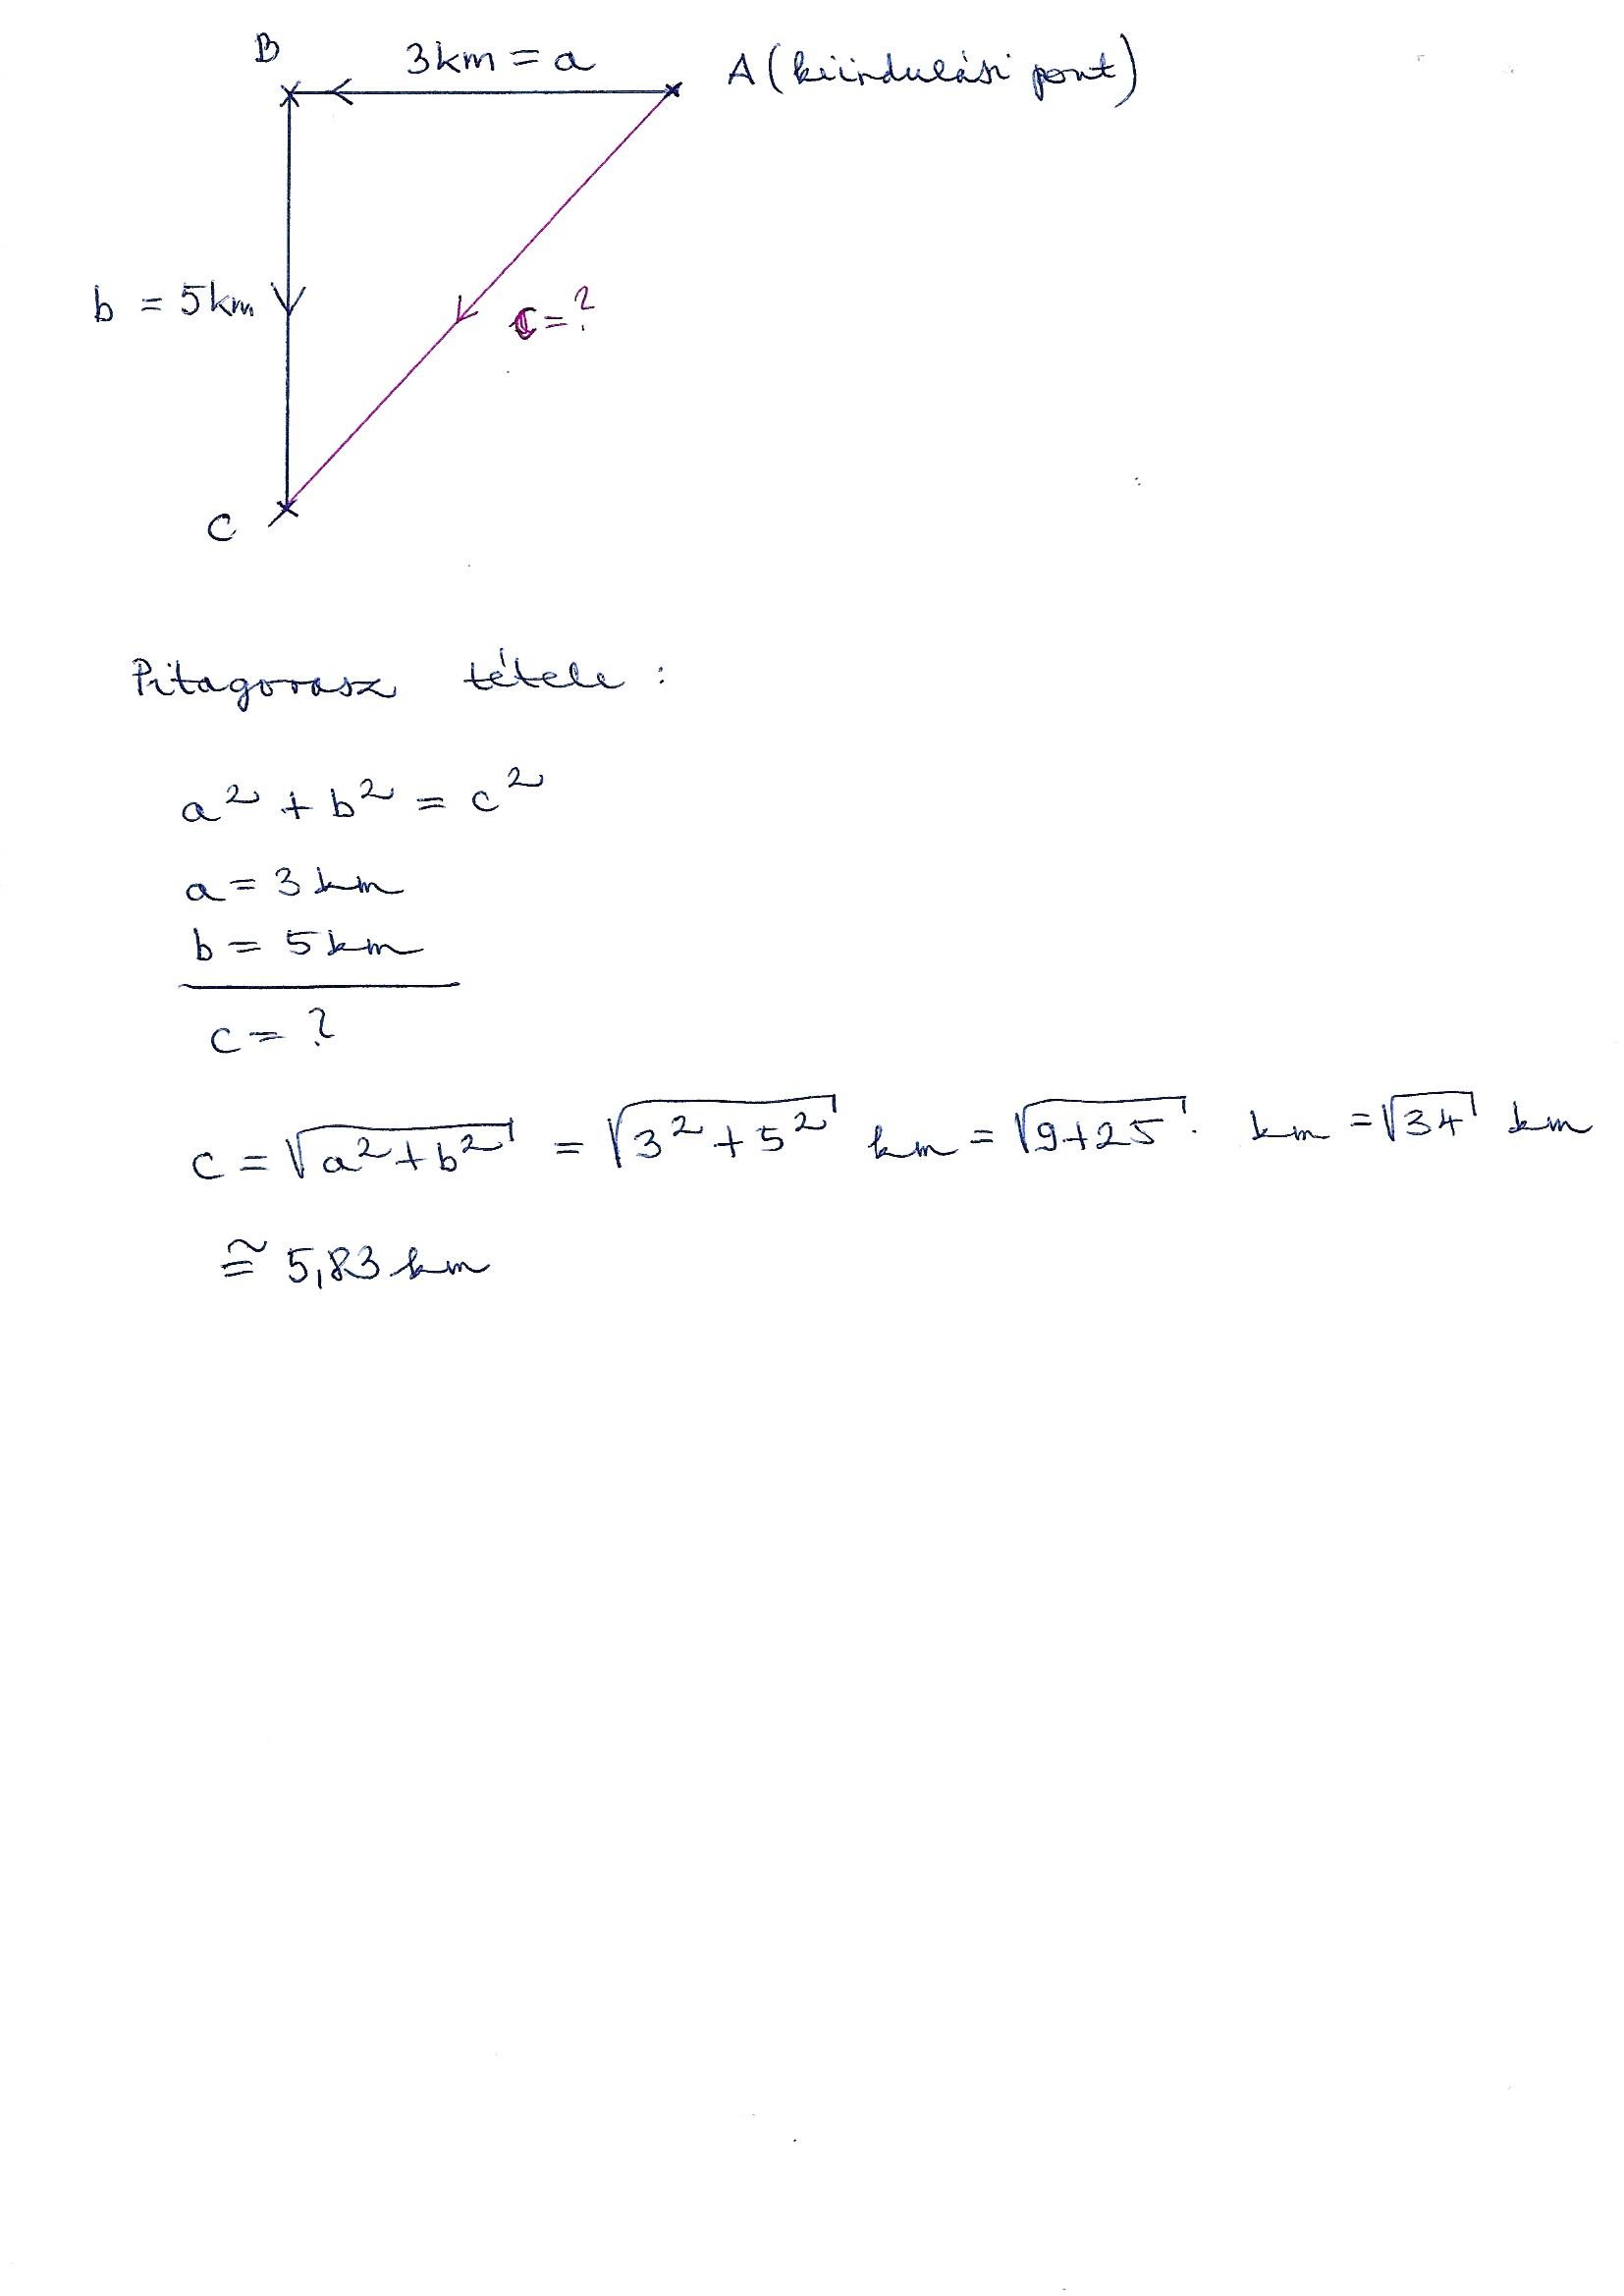 B
3km = a
A (kiindulási pont)
b = 5km
c = ?
C
Pitagorasz tétele :
a² + b² = c²
a = 3 km
b = 5 km
c = ?
c = √(a² + b²) = √(3² + 5²) km = √(9+25) km = √34 km
≅ 5,83 km